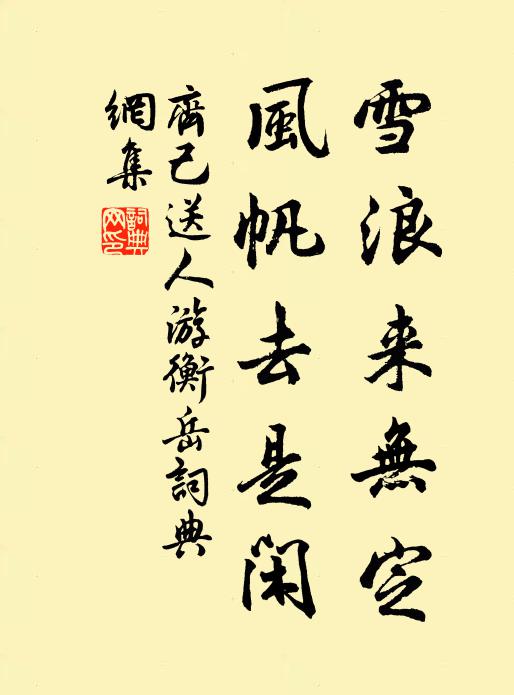 雪浪来無定
風帆去是閑
齊己送人游衡岳詞典
網集
詞典
网印